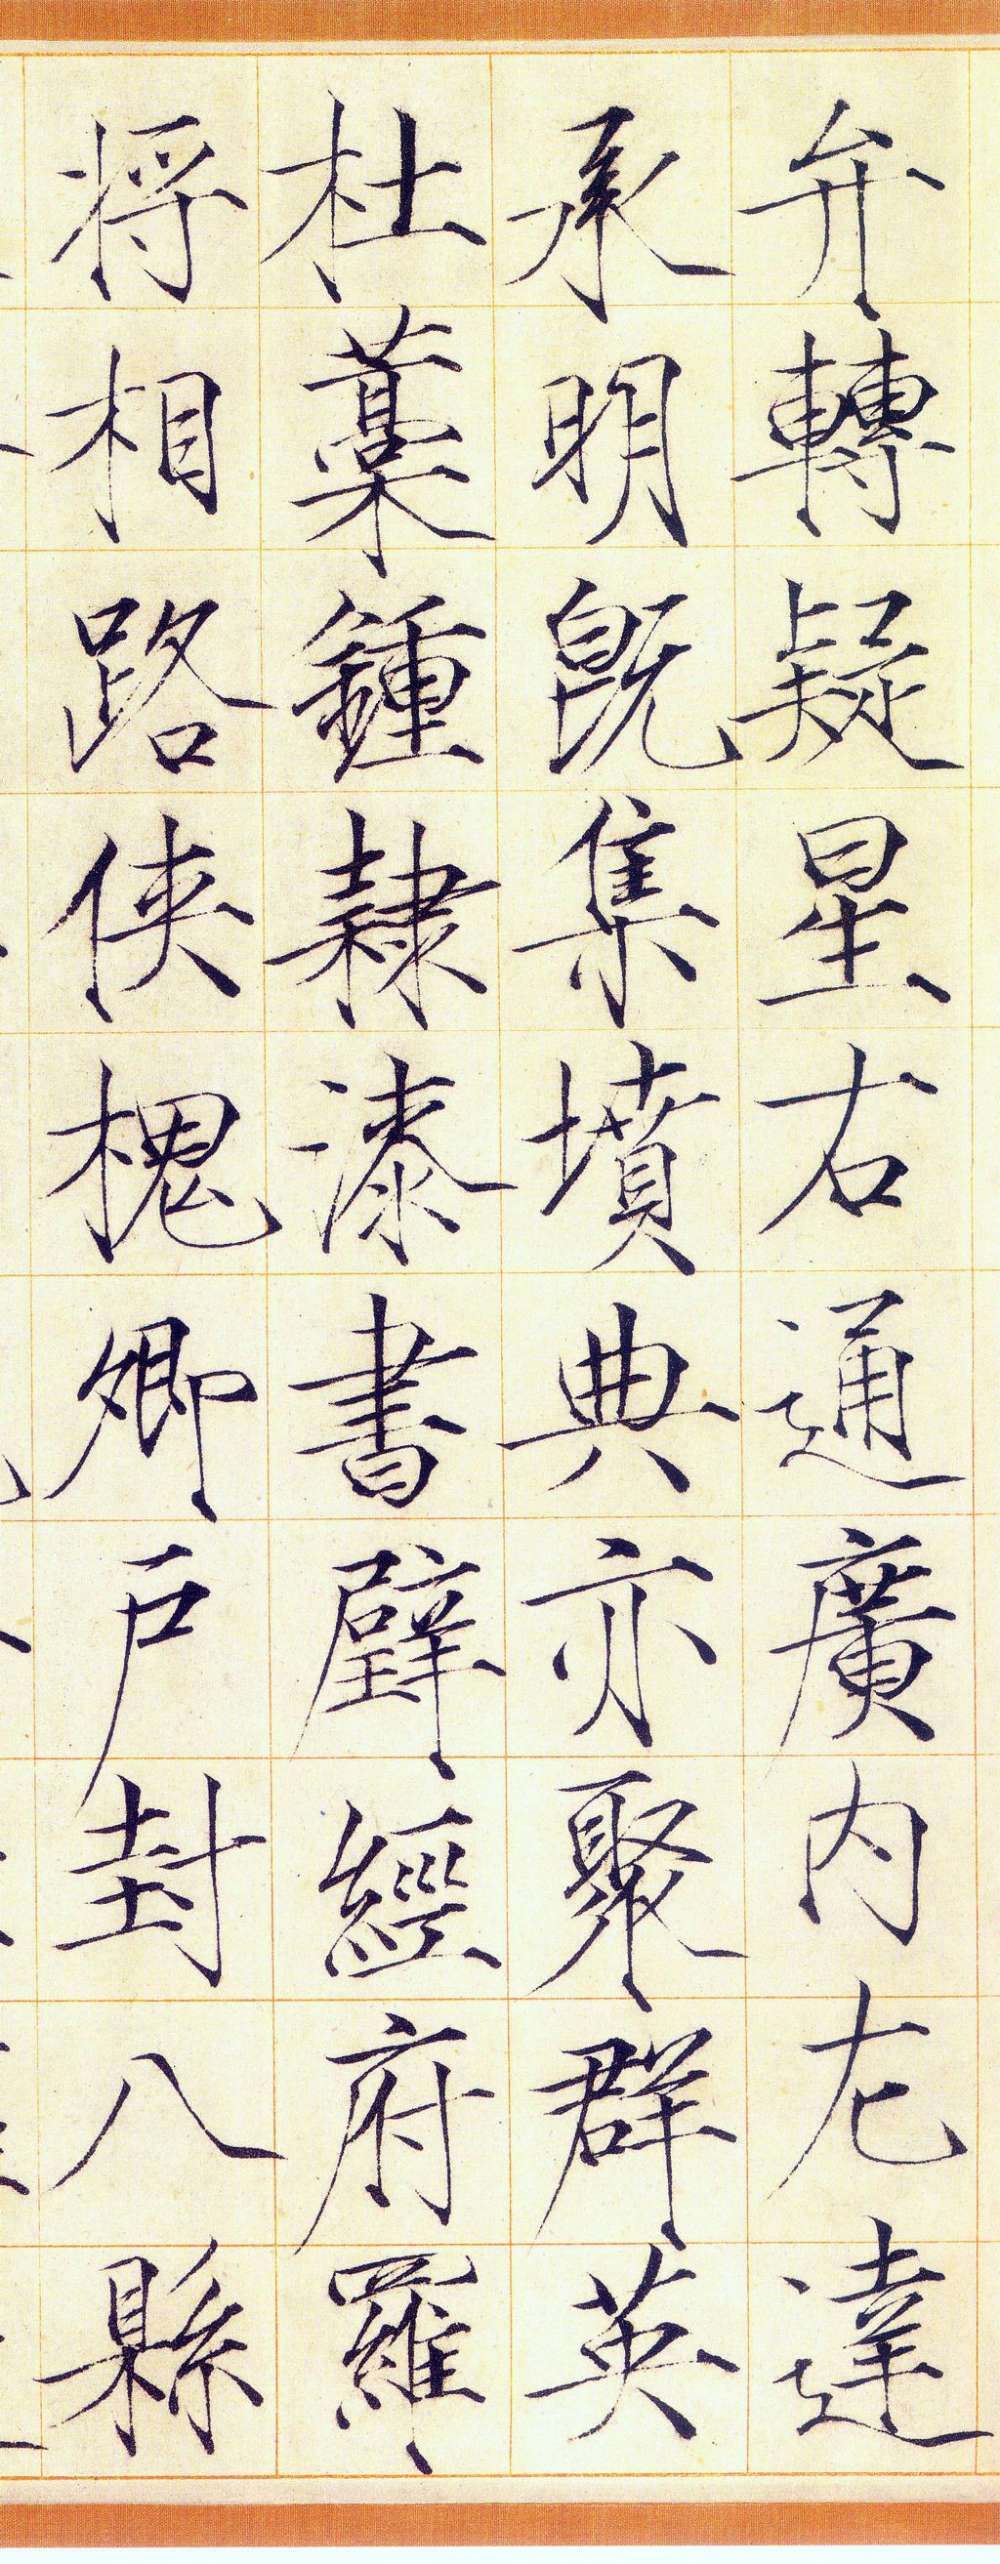 弁轉疑星右通廣內左達
承明既集墳典亦聚群英
杜稾鍾隸漆書壁經府羅
將相路俠槐卿戶封八縣